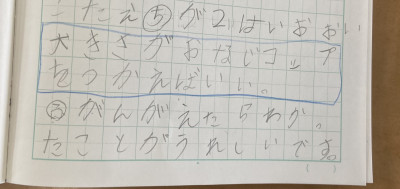 こたえ ち が2はいおおい
大きさがおなじコップ
をつかえばいい。
う がんがえたらわか。
たことがうれしいです。